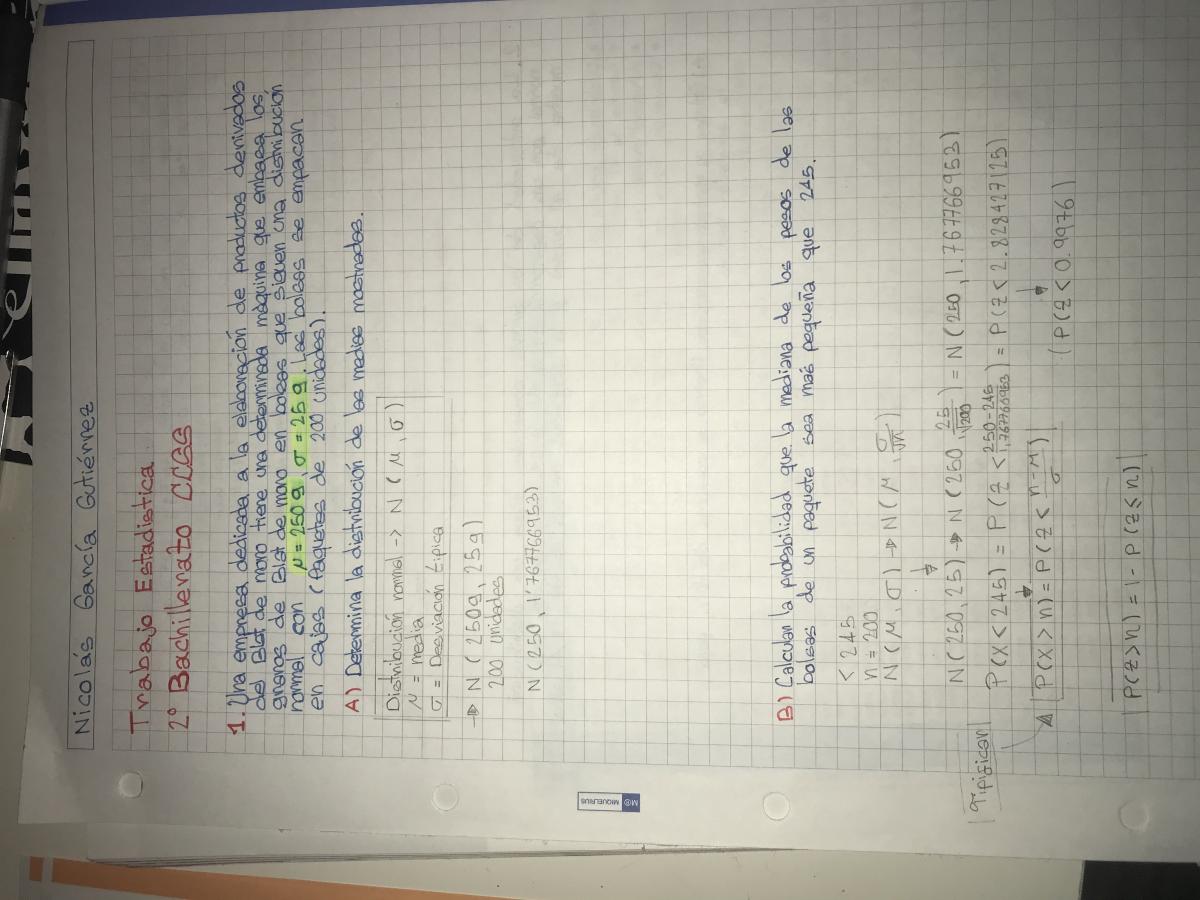 Nicolás García Gutiérrez
Trabajo Estadística
2º Bachillerato CCSS
1. Una empresa dedicada a la elaboración de productos derivados
del Blat de moro tiene una determinada máquina que embasa los
granos de Blat de moro en bolsas que siguen una distribución
normal con μ = 250 g, σ = 25 g. Las bolsas se empacan
en cajas (Paquetes de 200 unidades).
A) Determina la distribución de las medias mostradas.
Distribución normal -> N (μ, σ)
μ = media
σ = Desviación típica
→ N (250g, 25g)
200 unidades
N (250, 1'767766953)
B) Calcular la probabilidad que la mediana de los pesos de las
bolsas de un paquete sea más pequeña que 245.
< 245
n = 200
N (μ, σ) → N (μ, σ/√n)
N (250, 25) → N (250, 25/√200) = N (250, 1.767766953)
Tipificar
P (x < 245) = P (z < 250-245/1,767766953) = P (z < 2.828427125)
P (x > n) = P (z < n-μ/σ)
(P (z < 0.9976)
P (z > n) = 1 - P (z ≤ n)
MIQUELRIUS